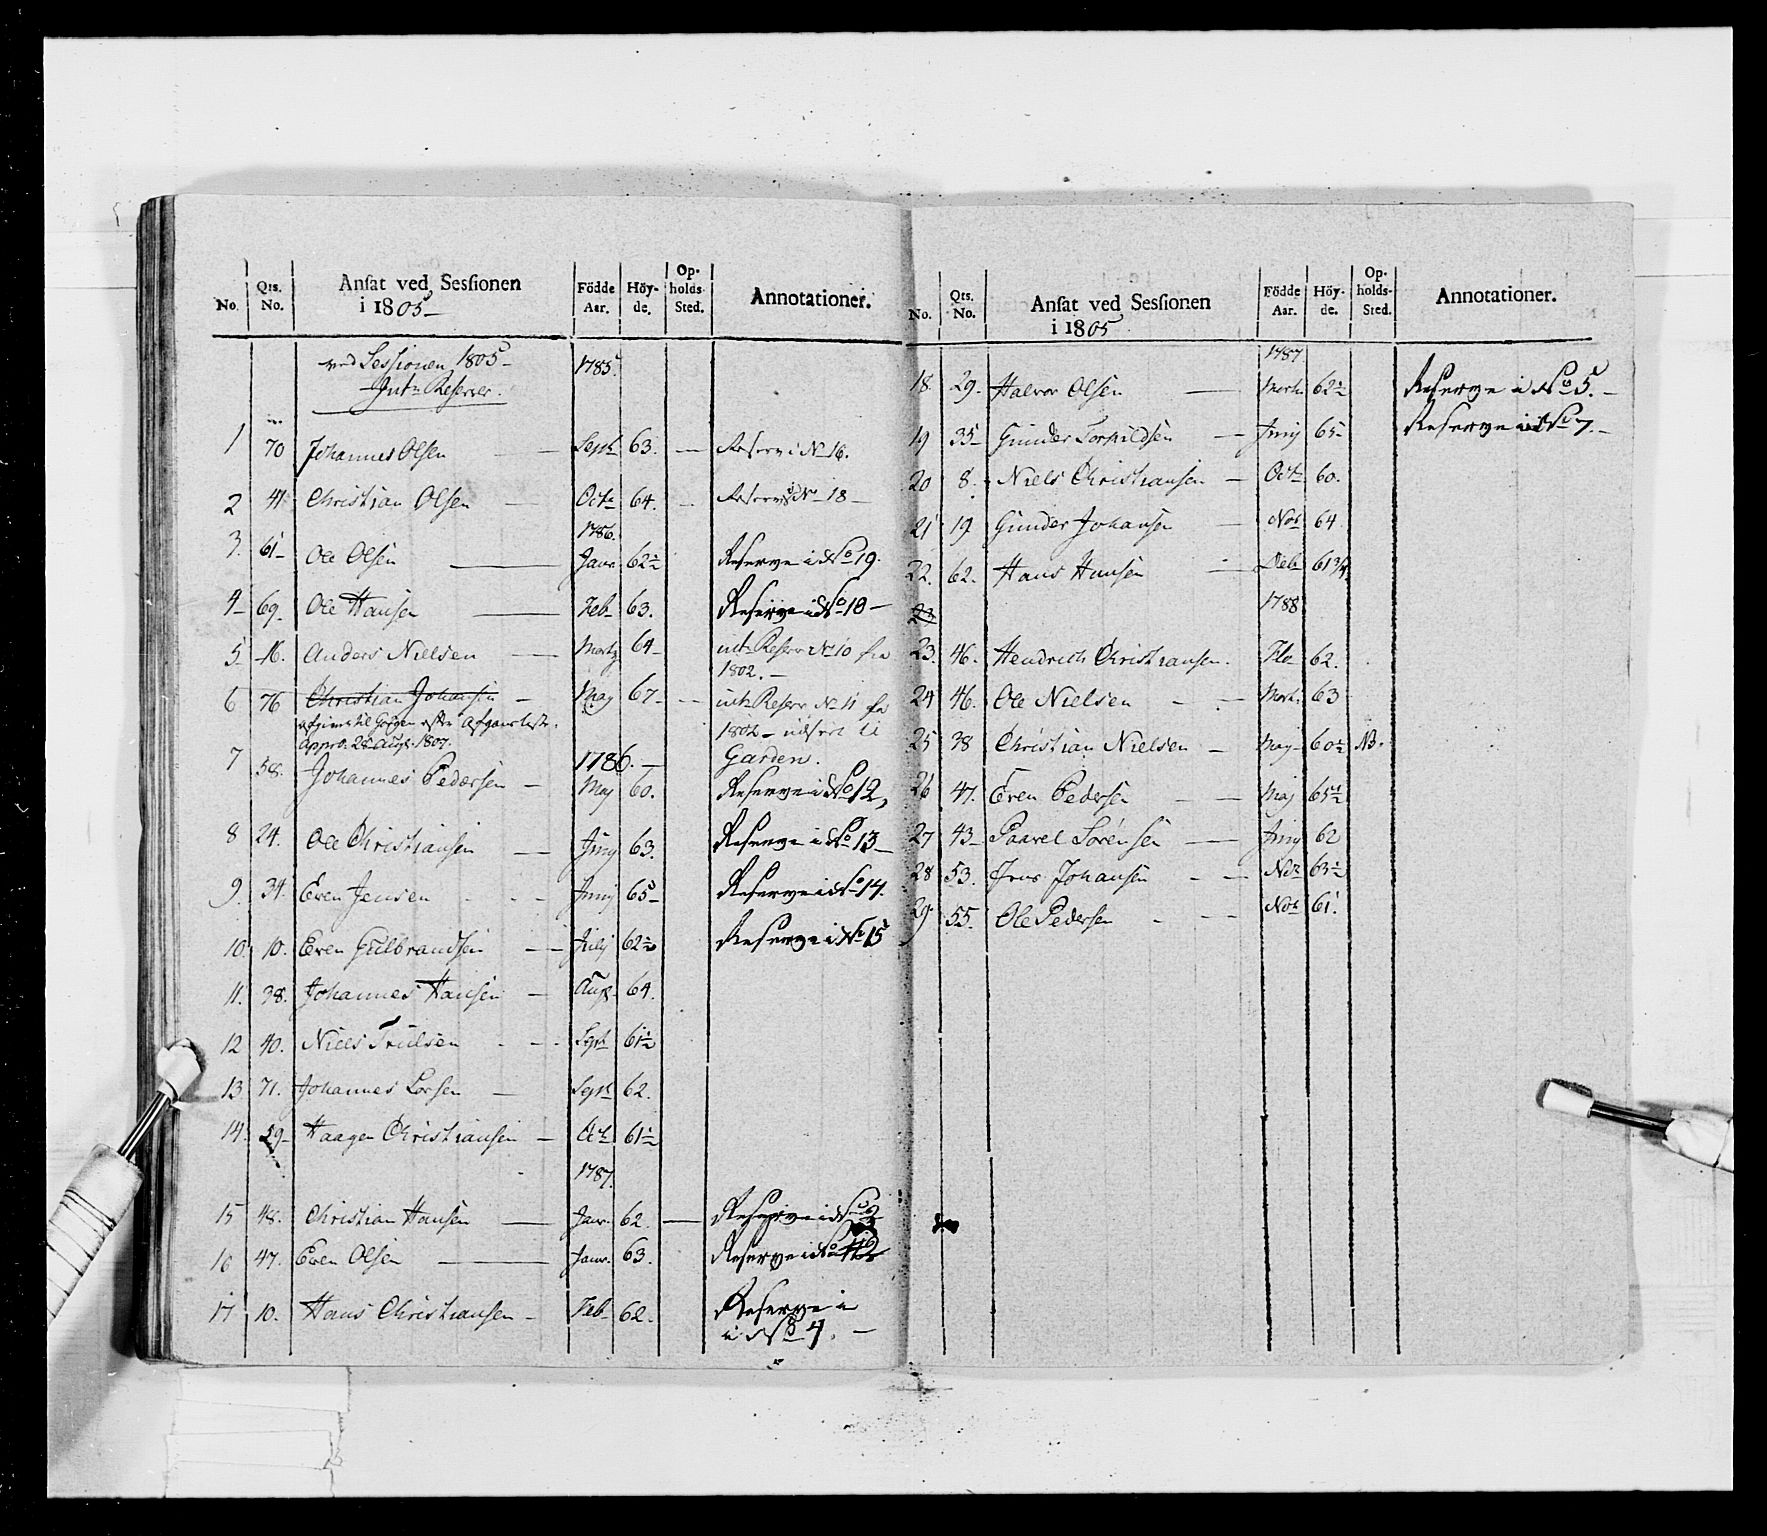 No. Qts. No. Ansat ved Sessionen i 1805 Födde Aar. Höyde. Opholds-Sted. Annotationer.
ved Sessionen 1805 1785.
Intr Reserver.
1 70 Johannes Olsen Septr 63. Reserv i No 16.
2 41 Christian Olsen Octr 64. Reserv i No 18
1786.
3. 61 Ole Olsen Janr 62½ Reserve i No 19.
4 69 Ole Hansen Feb 63. Reserve i No 18
5 16. Anders Nielsen Martz 64 intr Reserv No 10 fra
1802.
6 76 Christian Johansen May 67 intr Reserv No 11 fra
1802 udsert til
Garden.
Appro. 28 Aug. 1807.
1786.
7 58. Johannes Pedersen May 60. Reserve i No 12,
8 24. Ole Christiansen Juny 63. Reserve i No 13
9. 34. Even Jensen Juny 65 Reserve i No 14.
10. 10. Even Gulbrandsen July 62½ Reserve i No 15
11. 38. Johannes Hansen Aug. 64.
12 40. Niels Trulsen Sept 61½
13 71. Johannes Larsen Sept 62.
14. 29 Haagen Christiansen Oct 61½
1787.
15 48. Christian Hansen Janr. 62. Reserve i No 2
16 47. Even Olsen Janr. 63. Reserve i No
17 10. Hans Christiansen Feb 62. Reserve i
i No 4.
No. Qts. No. Ansat ved Sessionen i 1805 Födde Aar. Höyde. Opholds-Sted. Annotationer.
1787
18. 29. Halvor Olsen Marti 62½ Reserve i No 5.
19 35 Gunder Torkildsen Juny 65 Reserve i No 7.
20 8. Niels Christiansen Octr 60.
21 19. Gunder Johansen Nov 64.
22. 62. Hans Hansen Deb 61¾
23 1788
23. 46. Hendrich Christiansen. Feb 62.
24 46. Ole Nielsen Marti 63
25 38 Christian Nielsen May 60½ NB.
26 47. Even Pedersen May 65½
27 43 Paavel Sörensen Juny 62
28 53. Jens Johansen Nov 63½
29. 55. Ole Pedersen Nov 61.